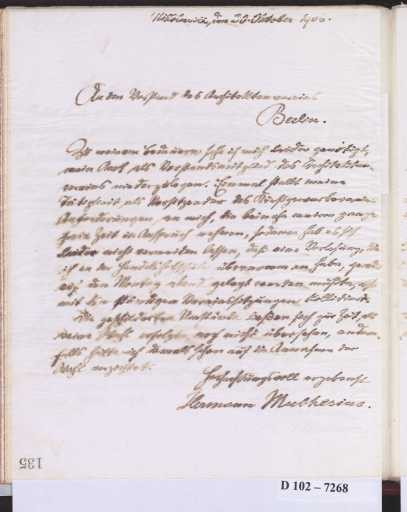 Nikolassee, den 20. Oktober 190
An den Vorstand des Architektenvereins
Berlin.
Zu meinem Bedauern sehe ich mich leider genötigt,
mein Amt als Vorstandsmitglied des Architekten-
vereins niederzulegen. Einmal stellt meine
Tätigkeit als Vorsitzender des
Anforderungen an mich, die beinahe meine ganze
freie Zeit in Anspruch nehmen, sodann hat es sich
leider nicht vermeiden lassen, daß eine Vorlesung, die
ich an der Handelshochschule übernommen habe, gerade
auf den Montag Abend gelegt werden mußte, also
mit den Vereinssitzungen kollidiert.
Die geschilderten Umstände ließen sich zur Zeit, als
meine Wahl erfolgte, noch nicht übersehen, andern-
falls hätte ich damals schon auf die Annahme der
Wahl verzichtet.
Hochachtungsvoll ergebenst
Hermann Muthesius.
135
D 102 – 7268